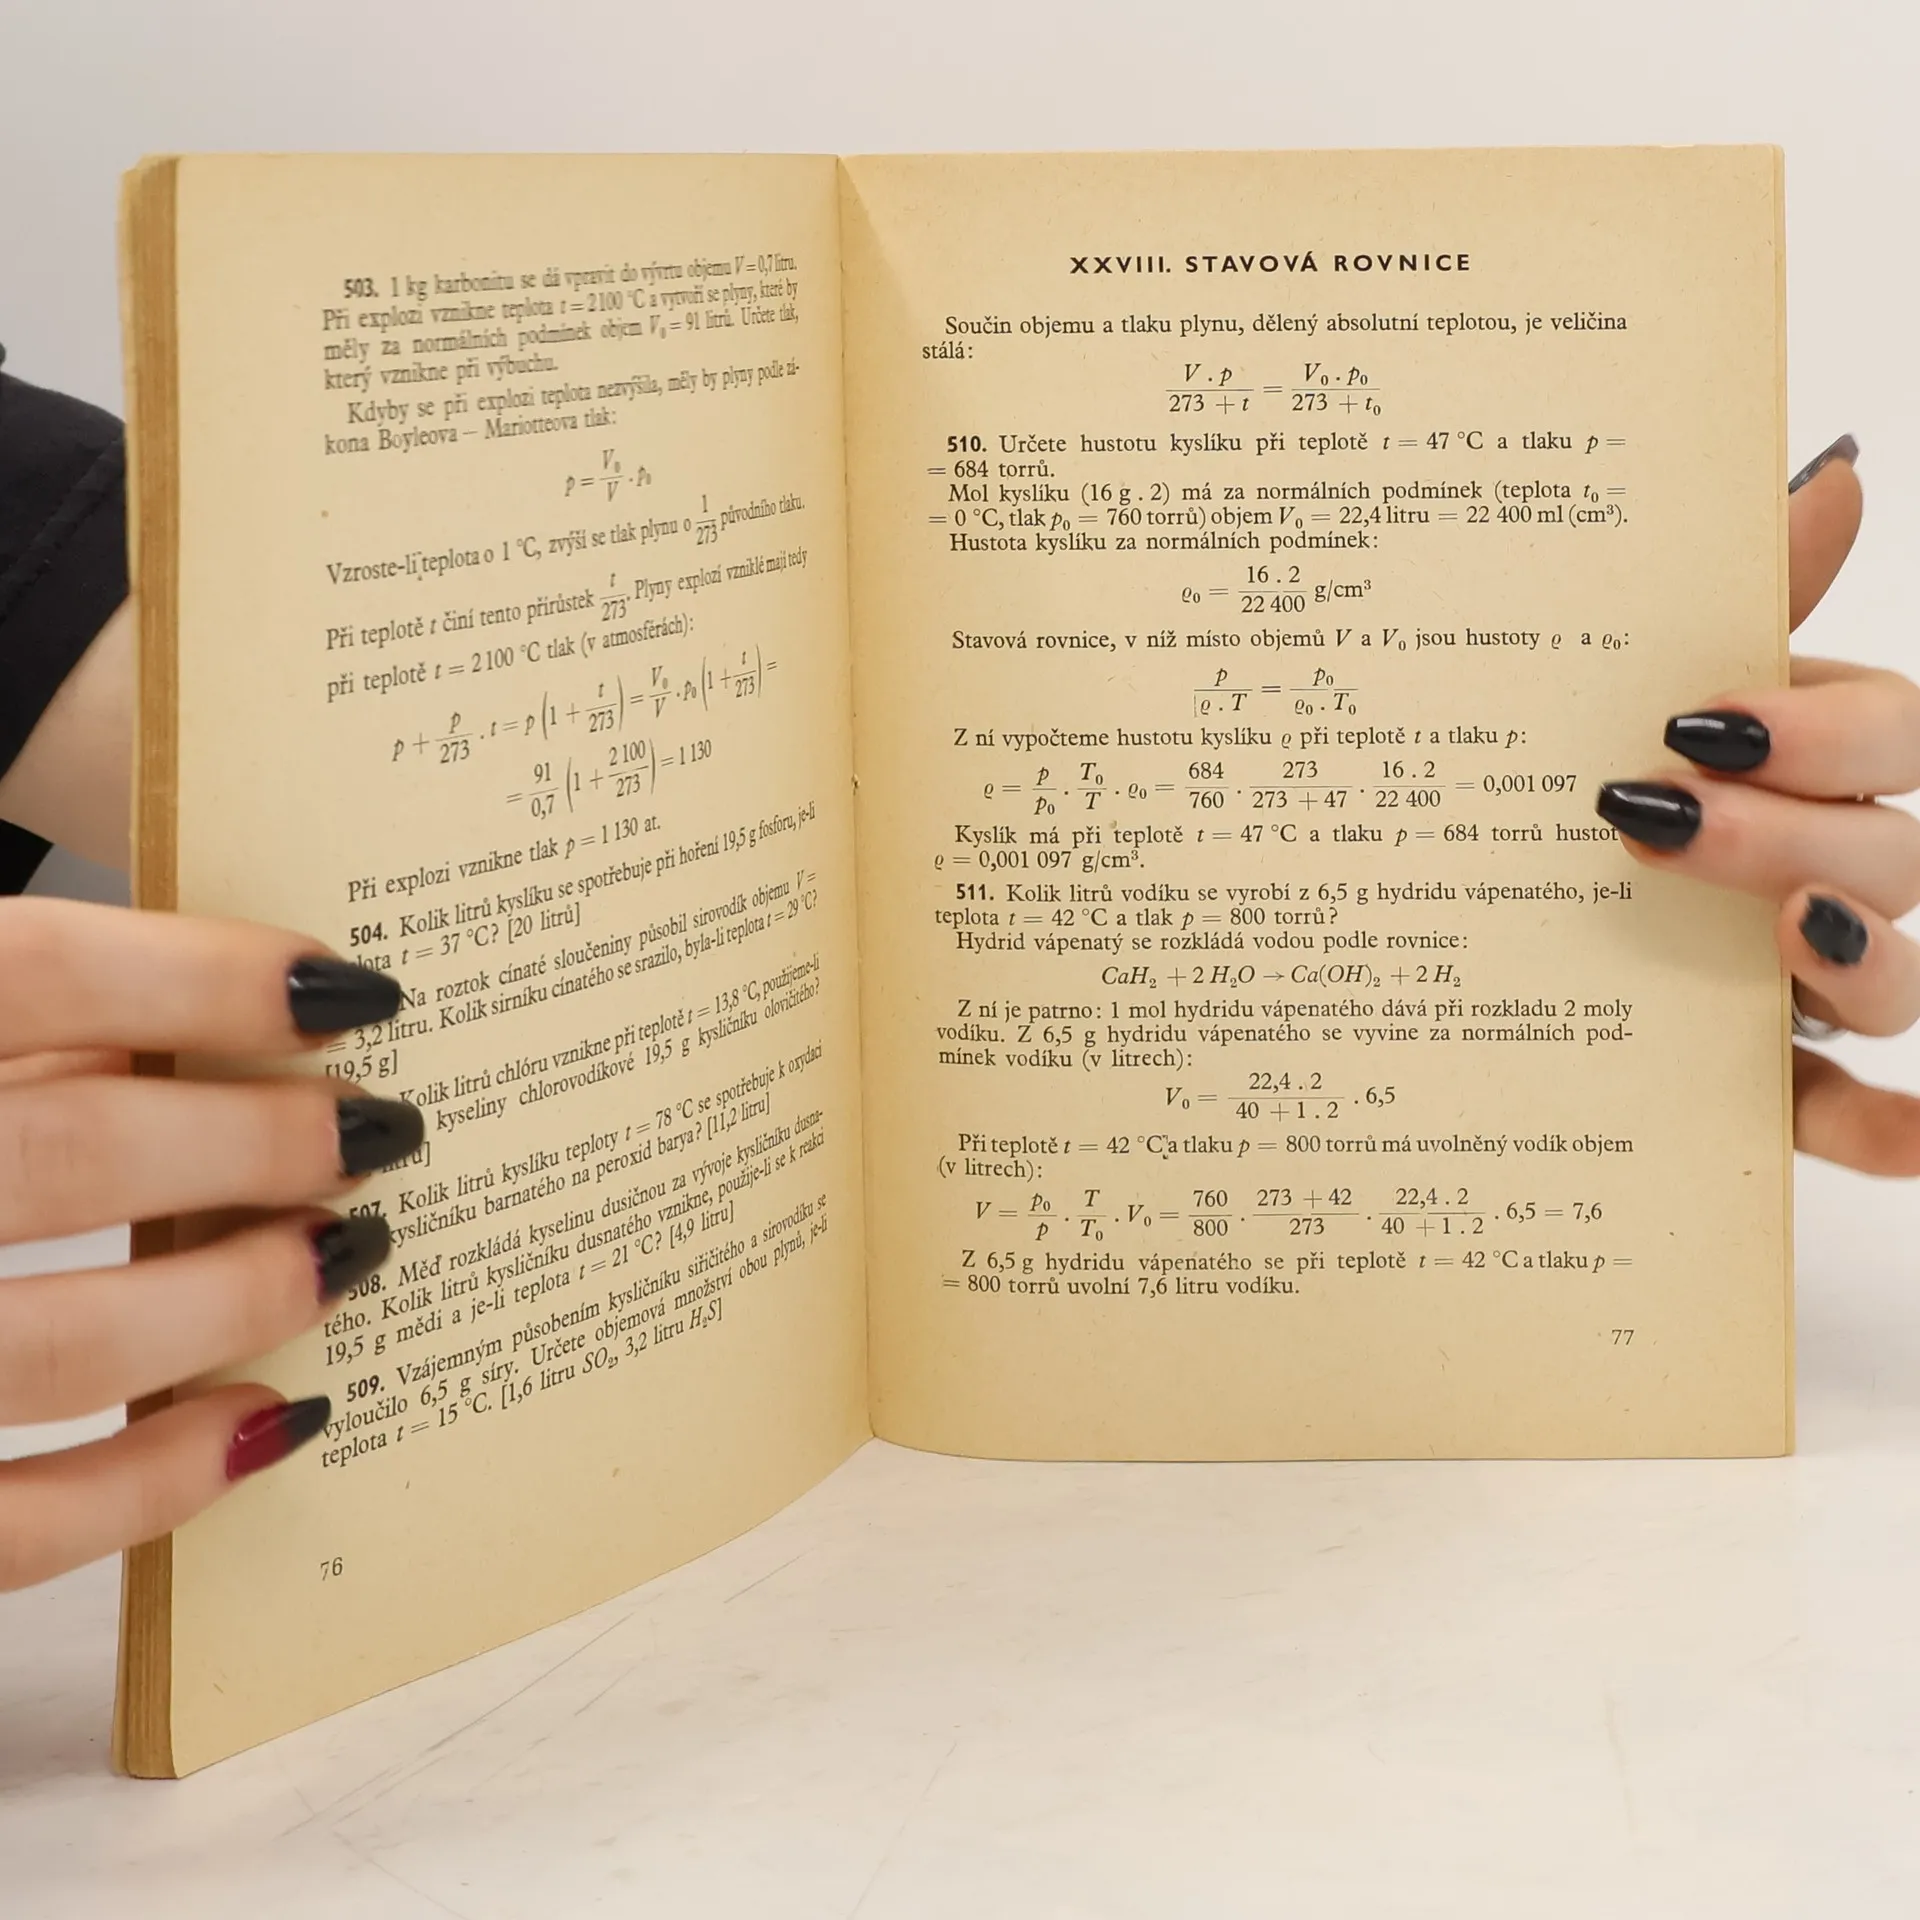 503. 1 kg karbonitu se dá vpravit do vývrtu objemu V = 0,7 litru.
Při explozi vznikne teplota t = 2100 °C a vytvoří se plyny, které by
měly za normálních podmínek objem V₀ = 91 litrů. Určete tlak,
který vznikne při výbuchu.
Kdyby se při explozi teplota nezvýšila, měly by plyny podle zá-
kona Boyleova — Mariotteova tlak:
p = V₀/V . p₀
Vzroste-li teplota o 1 °C, zvýší se tlak plynu o 1/273 původního tlaku.
Při teplotě t činí tento přírůstek t/273. Plyny explozí vzniklé mají tedy
při teplotě t = 2 100 °C tlak (v atmosférách):
p + p/273 . t = p (1 + t/273) = V₀/V . p₀ (1 + t/273) =
= 91/0,7 (1 + 2 100/273) = 1 130
Při explozi vznikne tlak p = 1 130 at.
504. Kolik litrů kyslíku se spotřebuje při hoření 19,5 g fosforu, je-li
lota t = 37 °C? [20 litrů]
Na roztok cínaté sloučeniny působil sirovodík objemu V =
= 3,2 litru. Kolik sirníku cínatého se srazilo, byla-li teplota t = 29 °C?
[19,5 g]
Kolik litrů chlóru vznikne při teplotě t = 13,8 °C, použijeme-li
kyseliny chlorovodíkové 19,5 g kysličníku olovičitého?
507. Kolik litrů kyslíku teploty t = 78 °C se spotřebuje k oxydaci
kysličníku barnatého na peroxid barya? [11,2 litru]
508. Měď rozkládá kyselinu dusičnou za vývoje kysličníku dusna-
tého. Kolik litrů kysličníku dusnatého vznikne, použije-li se k reakci
19,5 g mědi a je-li teplota t = 21 °C? [4,9 litru]
509. Vzájemným působením kysličníku siřičitého a sirovodíku se
vyloučilo 6,5 g síry. Určete objemová množství obou plynů, je-li
teplota t = 15 °C. [1,6 litru SO₂, 3,2 litru H₂S]
76
XXVIII. STAVOVÁ ROVNICE
Součin objemu a tlaku plynu, dělený absolutní teplotou, je veličina
stálá:
V . p / 273 + t = V₀ . p₀ / 273 + t₀
510. Určete hustotu kyslíku při teplotě t = 47 °C a tlaku p =
= 684 torrů.
Mol kyslíku (16 g . 2) má za normálních podmínek (teplota t₀ =
= 0 °C, tlak p₀ = 760 torrů) objem V₀ = 22,4 litru = 22 400 ml (cm³).
Hustota kyslíku za normálních podmínek:
ϱ₀ = 16 . 2 / 22 400 g/cm³
Stavová rovnice, v níž místo objemů V a V₀ jsou hustoty ϱ a ϱ₀:
p / ϱ . T = p₀ / ϱ₀ . T₀
Z ní vypočteme hustotu kyslíku ϱ při teplotě t a tlaku p:
ϱ = p/p₀ . T₀/T . ϱ₀ = 684/760 . 273/273 + 47 . 16 . 2/22 400 = 0,001 097
Kyslík má při teplotě t = 47 °C a tlaku p = 684 torrů hustot
ϱ = 0,001 097 g/cm³.
511. Kolik litrů vodíku se vyrobí z 6,5 g hydridu vápenatého, je-li
teplota t = 42 °C a tlak p = 800 torrů?
Hydrid vápenatý se rozkládá vodou podle rovnice:
CaH₂ + 2 H₂O → Ca(OH)₂ + 2 H₂
Z ní je patrno: 1 mol hydridu vápenatého dává při rozkladu 2 moly
vodíku. Z 6,5 g hydridu vápenatého se vyvine za normálních pod-
mínek vodíku (v litrech):
V₀ = 22,4 . 2 / 40 + 1 . 2 . 6,5
Při teplotě t = 42 °C a tlaku p = 800 torrů má uvolněný vodík objem
(v litrech):
V = p₀/p . T/T₀ . V₀ = 760/800 . 273 + 42/273 . 22,4 . 2/40 + 1 . 2 . 6,5 = 7,6
Z 6,5 g hydridu vápenatého se při teplotě t = 42 °C a tlaku p =
= 800 torrů uvolní 7,6 litru vodíku.
77